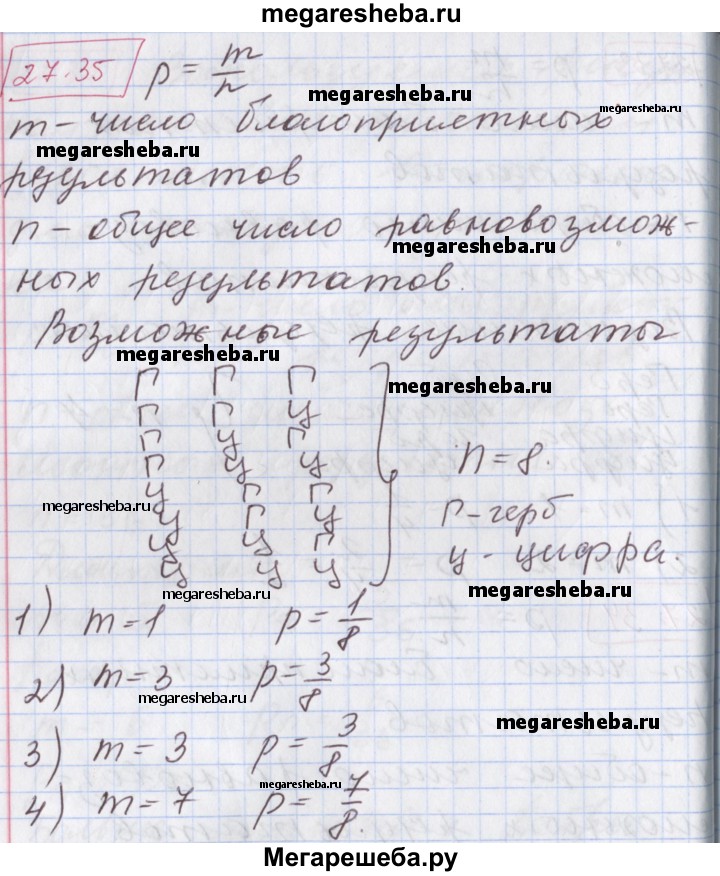 megaresheba.ru
27.35 p = m/n
megaresheba.ru
megaresheba.ru
m - число благоприятных
megaresheba.ru
результатов
n - общее число равновозмож-
megaresheba.ru
ных результатов.
Возможные результаты
megaresheba.ru
Г Г Г
megaresheba.ru
Г Г Ц
Г Ц Г
Г Ц Ц
n = 8.
Ц Г Г
megaresheba.ru
Г - герб
Ц Г Ц
Ц Ц Г
ц - цифра.
Ц Ц Ц
megaresheba.ru
megaresheba.ru
1) m = 1 p = 1/8
2) m = 3 p = 3/8
megaresheba.ru
megaresheba.ru
3) m = 3 p = 3/8
4) m = 7 p = 7/8.
Мегарешеба.ру